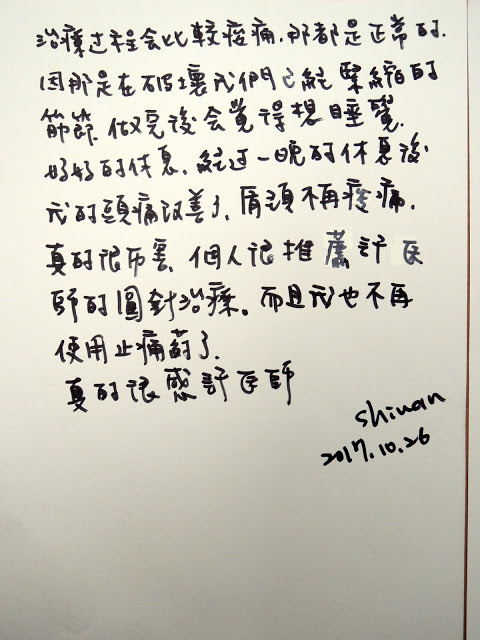 治療過程會比較痠痛,那都是正常的.
因那是在破壞我們已經緊縮的
筋節.做完後會覺得想睡覺.
好好的休息.經過一晚的休息後
我的頭痛改善了,肩頸不再痠痛.
真的很厉害.個人很推薦許医
師的圓針治療。而且我也不再
使用止痛葯了.
真的很感許医師
shiuan
2017.10.26